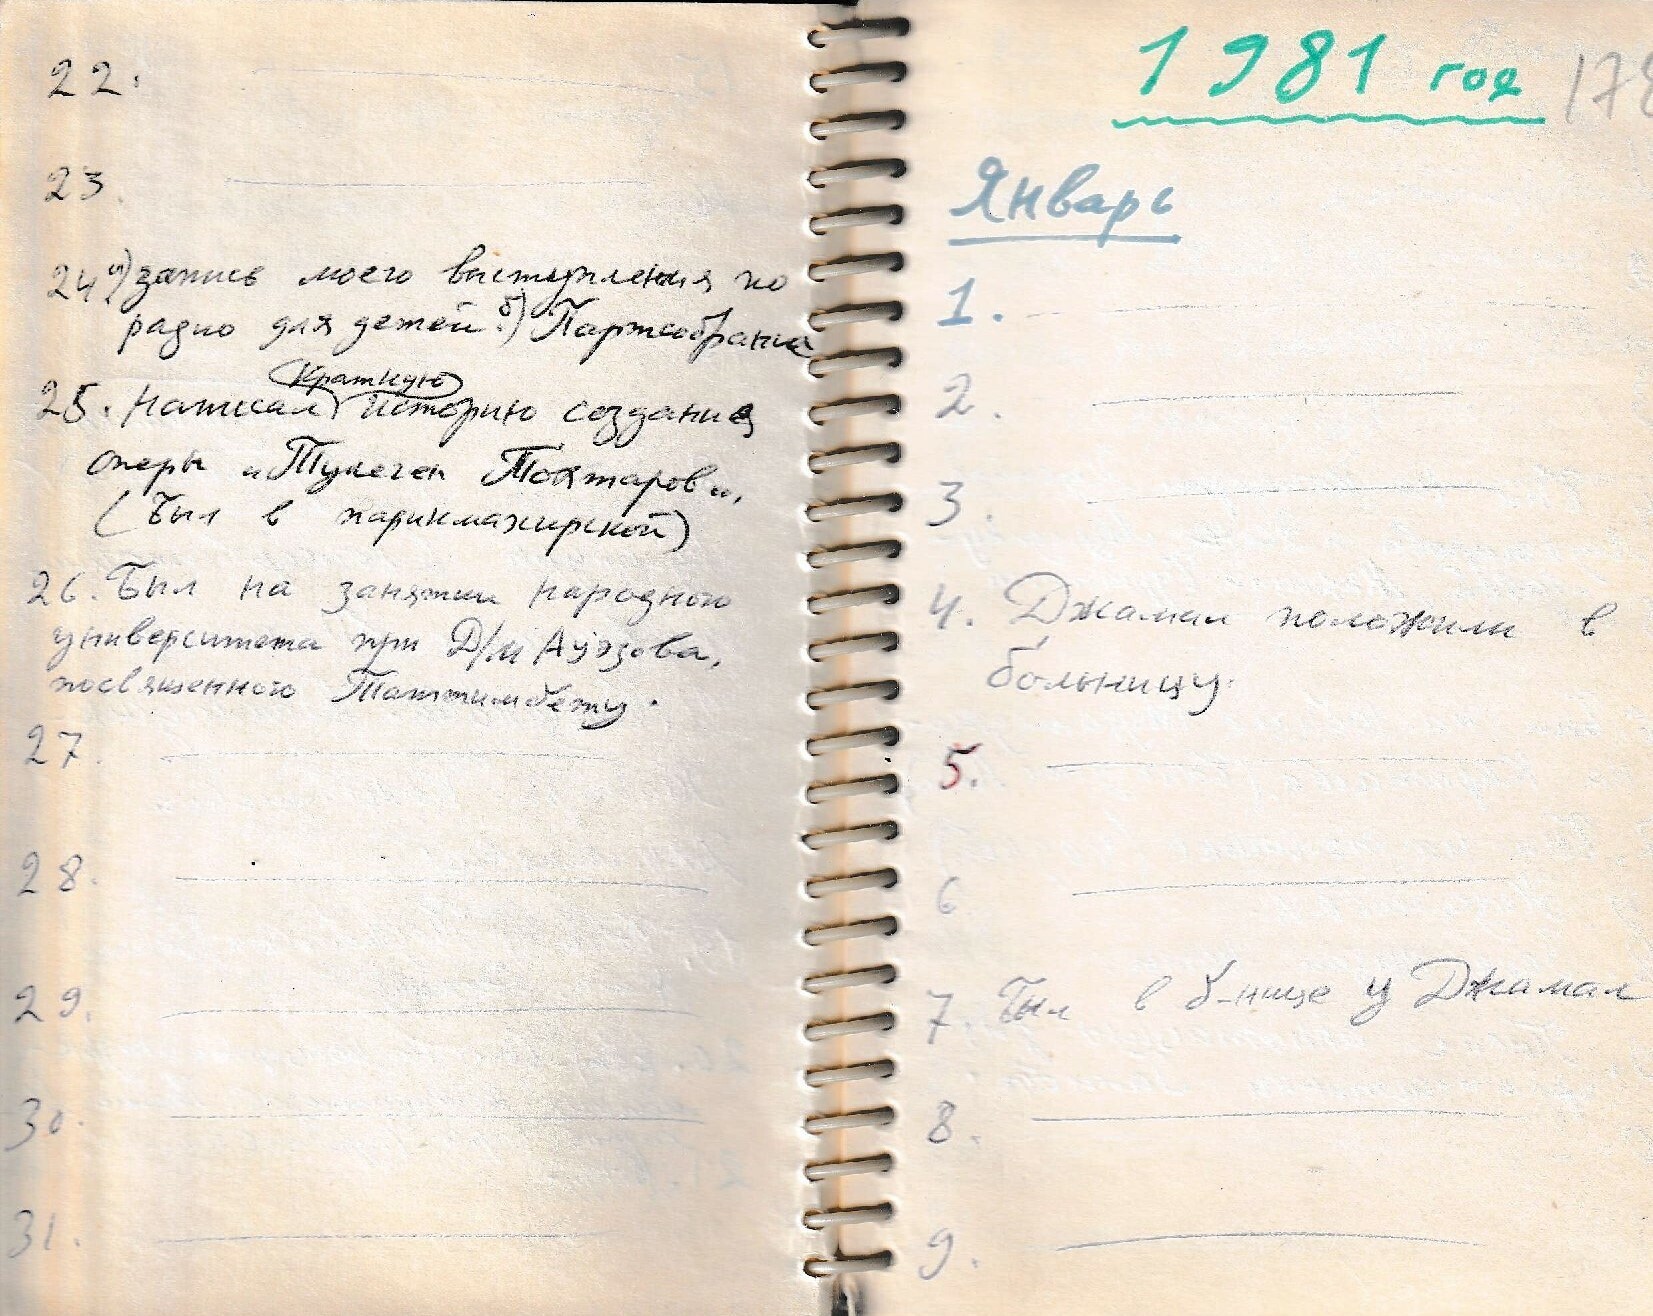 22.
23.
24 а) запись моего выступления по
радио для детей. б) Партсобрание
краткую
25. Написал историю создания
оперы „Тулеген Тохтаров“.
(Был в парикмахерской)
26. Был на занятии народного
университета при Д/м Ауэзова,
посвященного Таттимбету.
27.
28.
29.
30.
31.
1981 год
178
Январь
1.
2.
3.
4. Джамал положили в
больницу.
5.
6
7. Был в б-нице у Джамал
8.
9.